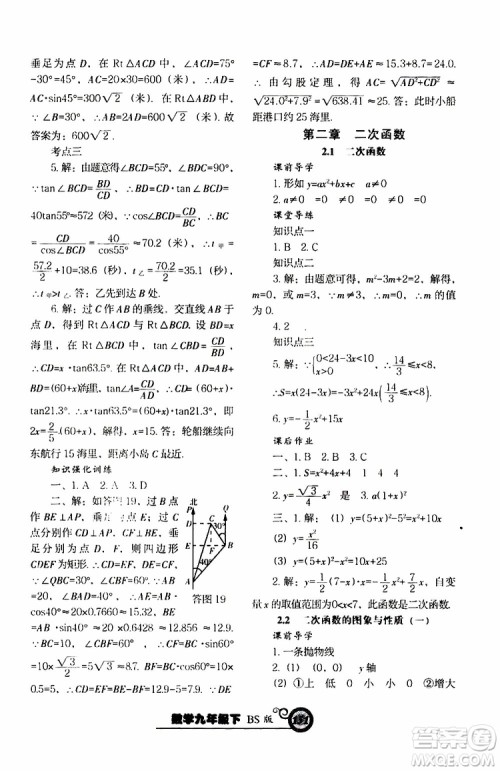 垂足为点 D，在 Rt△ACD 中，∠ACD=75°
-30°=45°，AC=20×30=600（米），∴AD=
AC·sin45°=300√2（米）。在 Rt△ABD 中，
∵∠B=30°，∴AB=2AD=600√2（米）。故
答案为：600√2（米）。
考点三
5. 解：由题意得∠BCD=55°，∠BDC=90°，
∵tan∠BCD=BD/CD，∴BD=CD·tan∠BCD=
40tan55°≈57.2，∵cos∠BCD=CD/BC，∴BC
=CD/cos∠BCD=40/cos55°≈70.2（米），∴t甲=
57.2/2+10=38.6（秒），t乙=70.2/2=35.1（秒），
∴t甲>t乙。答：乙先到达 B 处。
6. 解：过 C 作 AB 的垂线，交直线 AB 于
点 D，得到 Rt△ACD 与 Rt△BCD。设 BD=x
海里，在 Rt△BCD 中，tan∠CBD=CD/BD，
∴CD=x·tan63.5°，在 Rt△ACD 中，AD=AB
+BD=(60+x)海里，tan∠A=CD/AD，∴CD=(60+x)·
tan21.3°，∴x·tan63.5°=(60+x)·tan21.3°，即
2x=2/5(60+x)，解得 x=15。答：轮船继续向
东航行 15 海里，距离小岛 C 最近。
知识强化训练
一、1. A 2. A 3. D
二、解：如答图 19，过 B 点
作 BE⊥AP，垂足为点 E；过 C
点分别作 CD⊥AP，CF⊥BE，
垂足分别为点 D，F，则四边形
CDEF 为矩形。∴CD=EF，DE
=CF，∵∠QBC=30°，∴∠CBF=60°。在 Rt△ABE 中，AB=
20，∠BAD=40°，∴AE=AB·
cos40°≈20×0.7660≈15.3；
BE=AB·sin40°≈20×0.6428
=12.856≈12.9。在 Rt△BCF
中，BC=10，∠CBF=60°，∴CF=BC·sin60°
=10×√3/2=5√3≈8.7；BF=BC·cos60°=10×
0.5=5。∴CD=EF=BE-BF=12.9-5=7.9。∵DE
北
P
Q
D
C
E
F
B
A
答图 19
=CF≈8.7，∴AD=DE+AE≈8.7+15.3=24.0。
∴由勾股定理，得 AC=√(AD²+CD²)≈
√(24.0²+7.9²)=√638.41≈25。答：此时小船
距港口约 25 海里。
第二章 二次函数
2.1 二次函数
课前导学
1. 形如 y=ax²+bx+c a≠0
2. a≠0 =0 =0 =0 ≠0
课堂导练
知识点一
1. B 2. B
知识点二
3. 解：由题意可得，m²-3m=0，解得，
m=0，m=3，∵m≠3，∴m=0，∴m 的值
为 0。
4. 2
知识点三
5. 解：∵{0<24-3x≤10 x>0，∴14/3≤x<8，
∴S=x(24-3x)=-3x²+24x（14/3≤x<8）。
6. y=-1/2x²+15x
课后作业
一、1. D 2. D
二、1. ≠0 =0
2. y=√3/4x² 3. a(1+x)²
三、1. 解：（1）y=(5+x)²-5²=x²+10x
（2）y=x²/16
（3）y=(5+x)(6+x)-5×6=x²+11x
2. 解：y=1/2(7-x)·x=-1/2x²+7/2x，自变
量 x 的取值范围为0<x<7，此函数是二次函数。
2.2 二次函数的图象与性质（一）
课前导学
1. 一条抛物线
2.（1）（0，0） y 轴
（2）①上 低 减小 增大
数学九年级下 BS 版 151